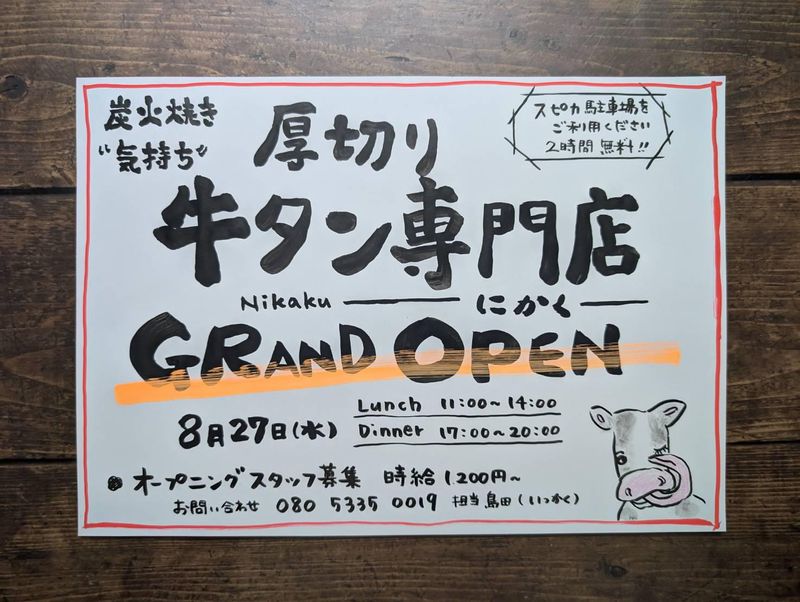 炭火焼き
"気持ち"
厚切り
スピカ駐車場を
ご利用ください
2時間無料!!
牛タン専門店
Nikaku にかく
GRAND OPEN
8月27日(水)
Lunch 11:00~14:00
Dinner 17:00~20:00
● オープニングスタッフ募集 時給1,200円~
お問い合わせ 080 5335 0019 担当 島田(いっかく)